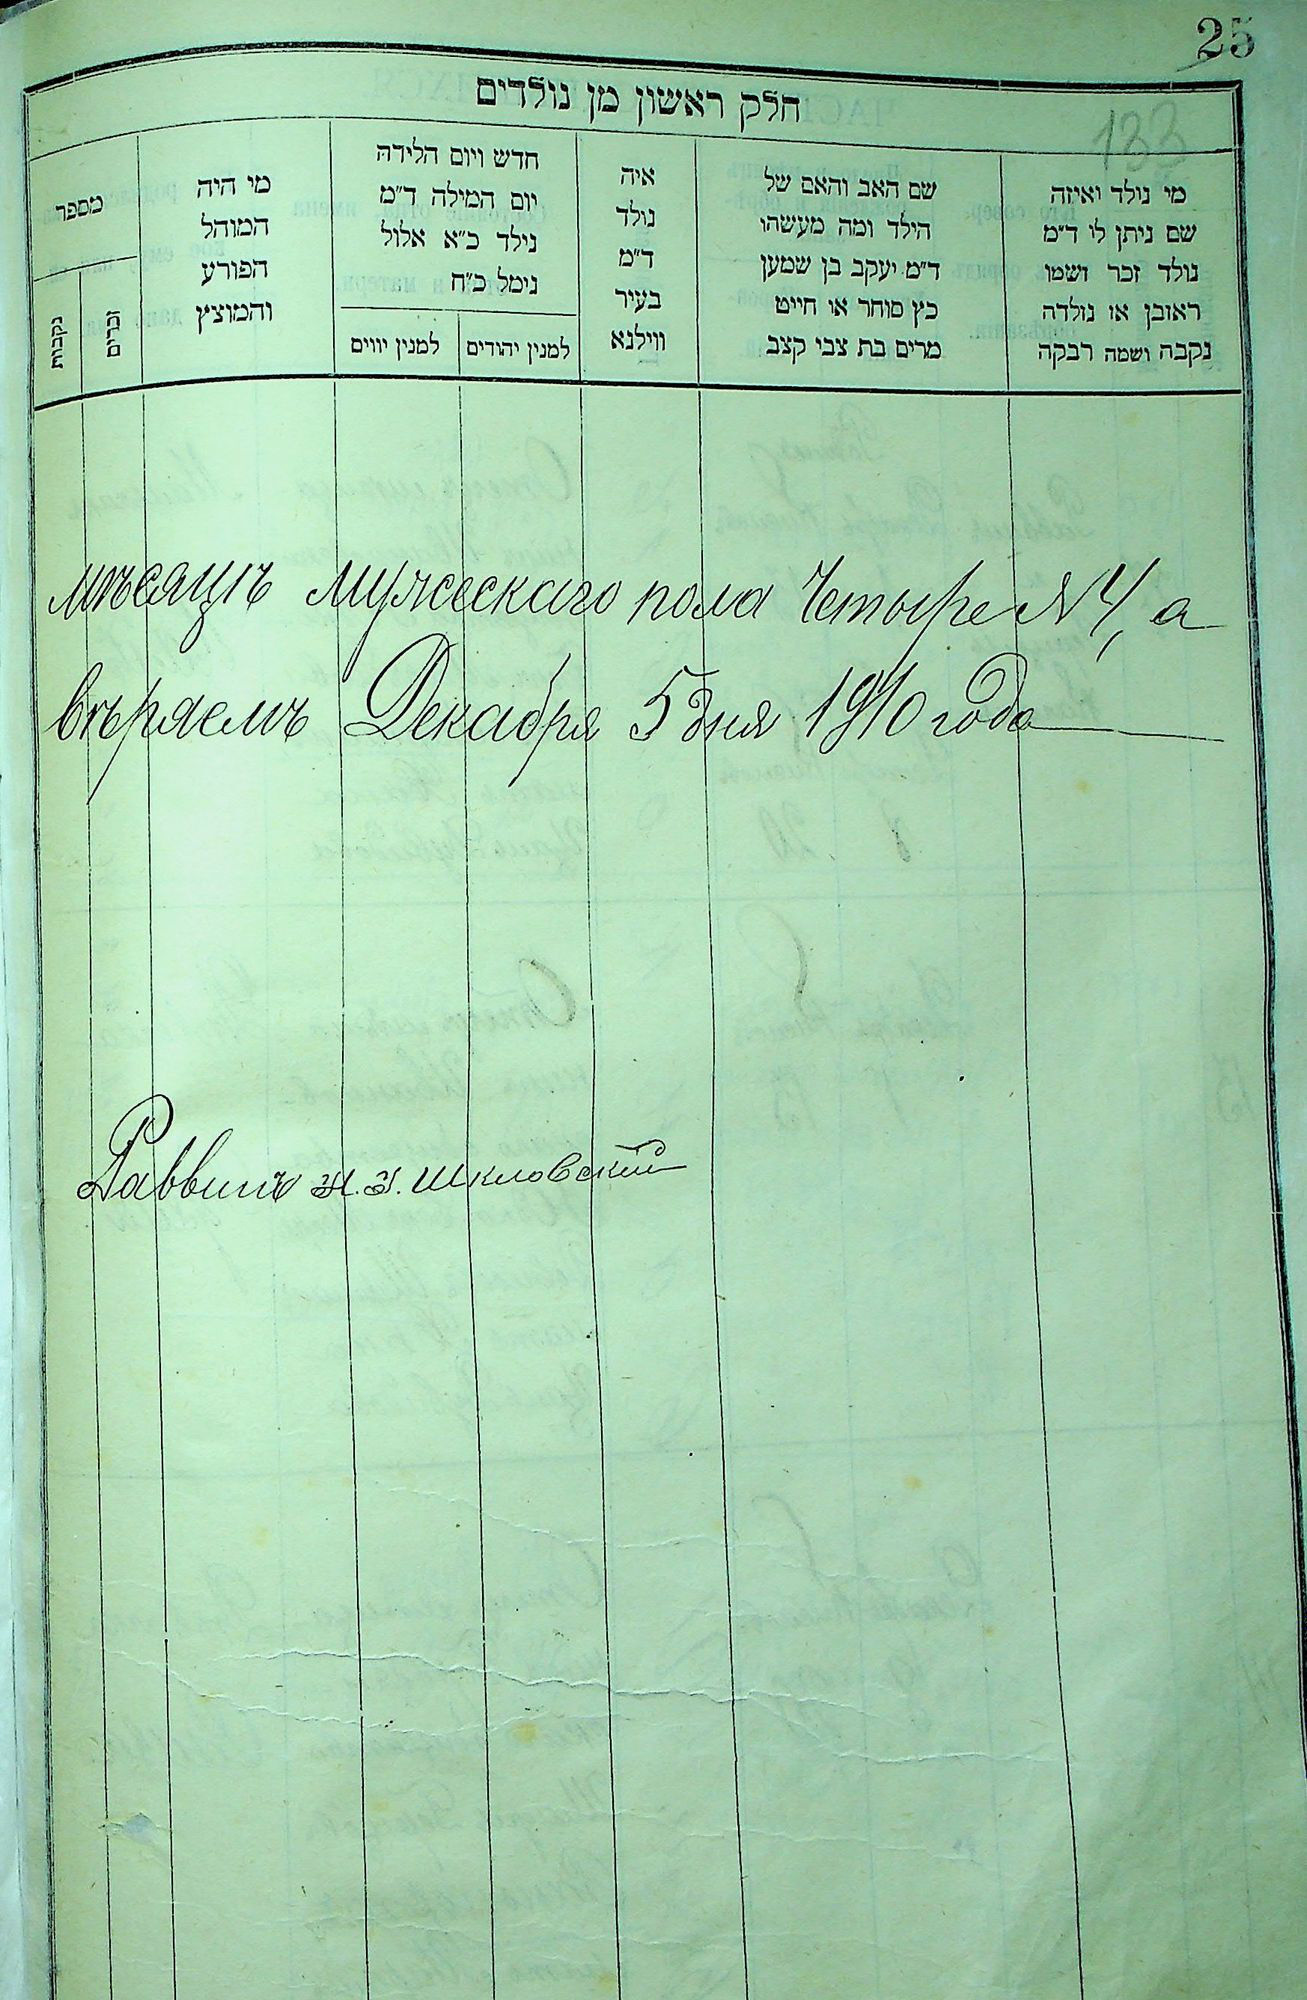 25
133
חלק ראשון מן נולדים
מי נולד ואיזה
שם ניתן לו ד"מ
נולד זכר ושמו
ראובן או נולדה
נקבה ושמה רבקה
שם האב והאם של
הילד ומה מעשהו
ד"מ יעקב בן שמעון
כץ סוחר או חייט
מרים בת צבי קצב
איה
נולד
ד"מ
בעיר
ווילנא
חדש ויום הלידה
יום המילה ד"מ
נילד כ"א אלול
נימל כ"ח
למנין יהודים
למנין יווים
מי היה
המוהל
הפורע
והמוצץ
מספר
זכרים
נקבות
мѣсяцъ мужескаго пола Четыре N 4, а
вѣряемъ Декабря 5 дня 1910 года
Раввинъ Шкловскій